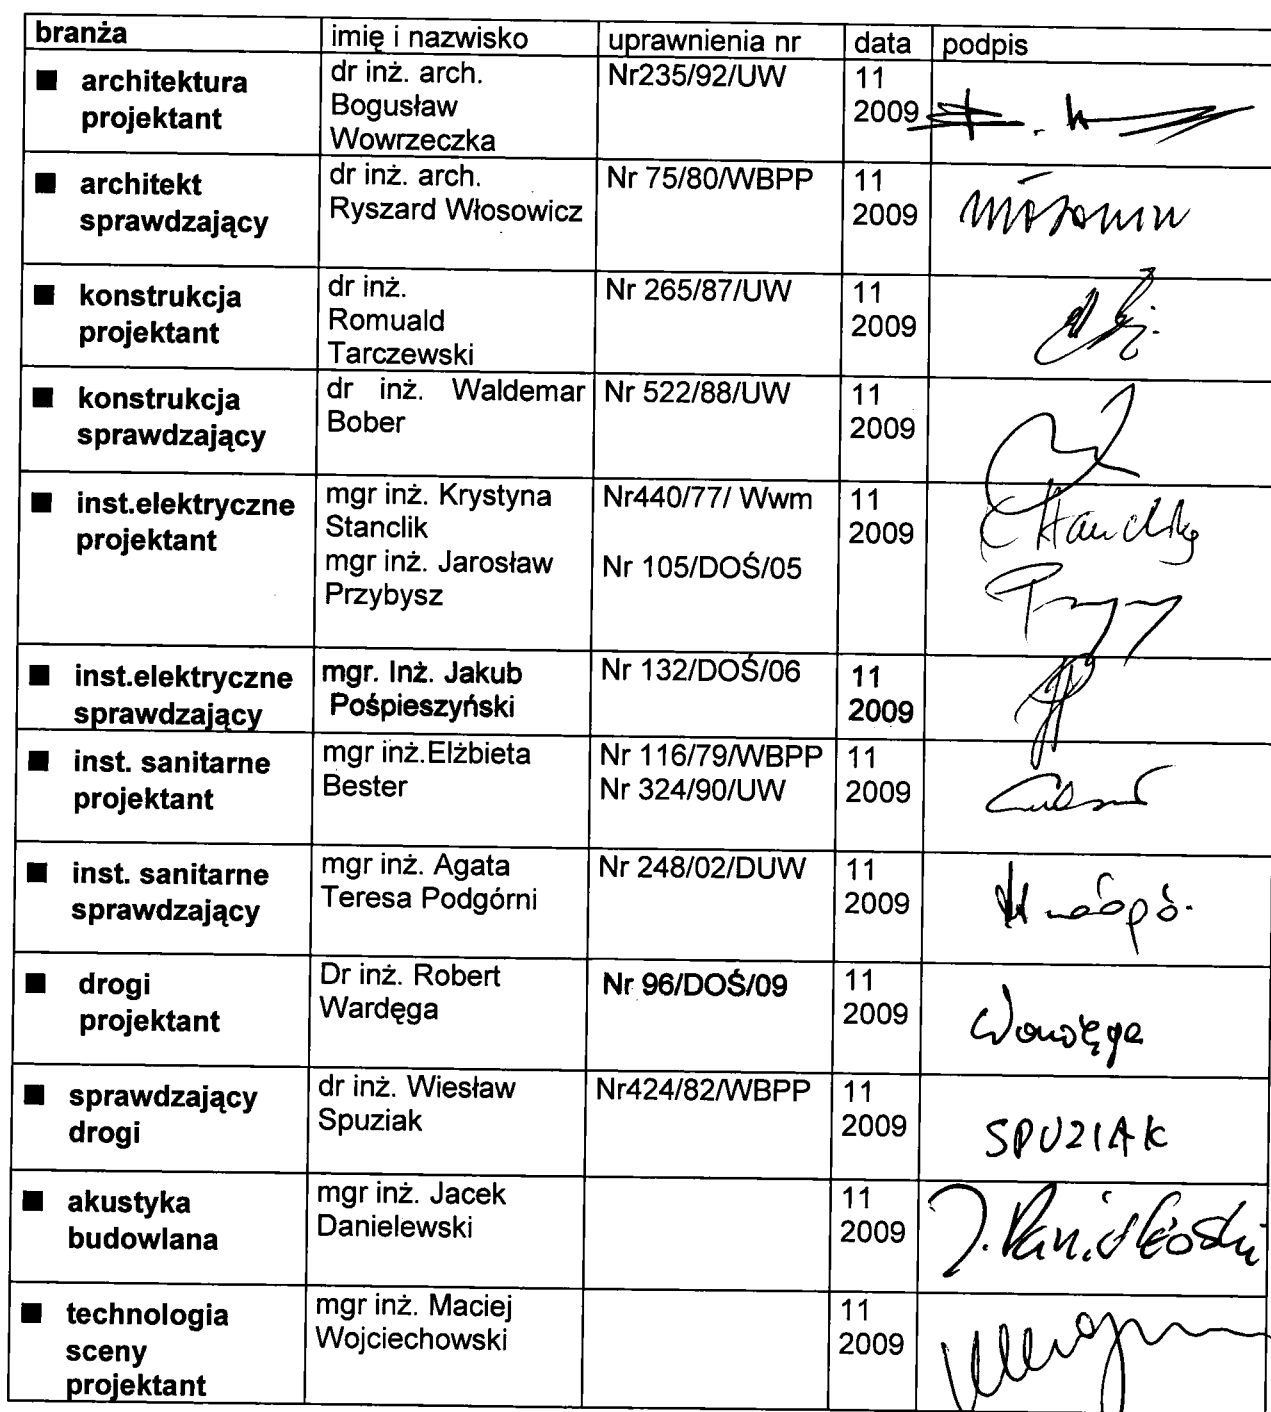 branża imię i nazwisko uprawnienia nr data podpis
■ architektura projektant dr inż. arch. Bogusław Wowrzeczka Nr235/92/UW 11 2009
■ architekt sprawdzający dr inż. arch. Ryszard Włosowicz Nr 75/80/WBPP 11 2009
■ konstrukcja projektant dr inż. Romuald Tarczewski Nr 265/87/UW 11 2009
■ konstrukcja sprawdzający dr inż. Waldemar Bober Nr 522/88/UW 11 2009
■ inst.elektryczne projektant mgr inż. Krystyna Stanclik mgr inż. Jarosław Przybysz Nr440/77/ Wwm Nr 105/DOŚ/05 11 2009
■ inst.elektryczne sprawdzający mgr. Inż. Jakub Pośpieszyński Nr 132/DOŚ/06 11 2009
■ inst. sanitarne projektant mgr inż.Elżbieta Bester Nr 116/79/WBPP Nr 324/90/UW 11 2009
■ inst. sanitarne sprawdzający mgr inż. Agata Teresa Podgórni Nr 248/02/DUW 11 2009
■ drogi projektant Dr inż. Robert Wardęga Nr 96/DOŚ/09 11 2009 Wardęga
■ sprawdzający drogi dr inż. Wiesław Spuziak Nr424/82/WBPP 11 2009 SPUZIAK
■ akustyka budowlana mgr inż. Jacek Danielewski 11 2009 J. Danielewski
■ technologia sceny projektant mgr inż. Maciej Wojciechowski 11 2009